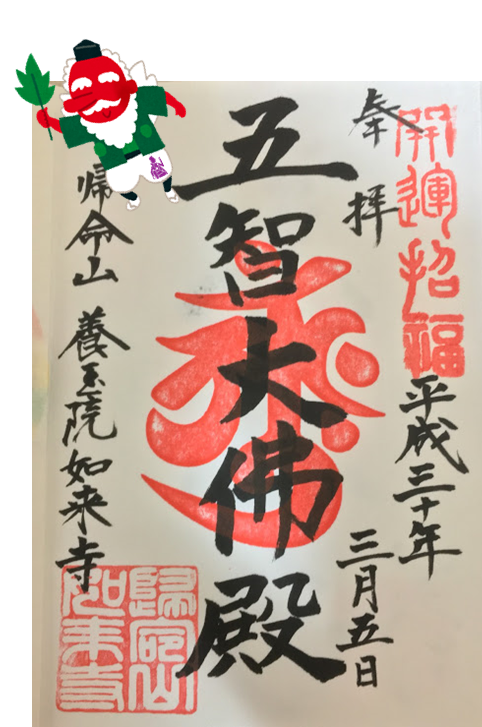 開運招福
奉拝
平成三十年
三月五日
五智大佛殿
帰命山 養玉院如来寺
歸命山
如来寺